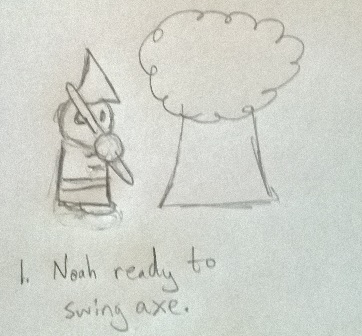 1. Noah ready to
swing axe.